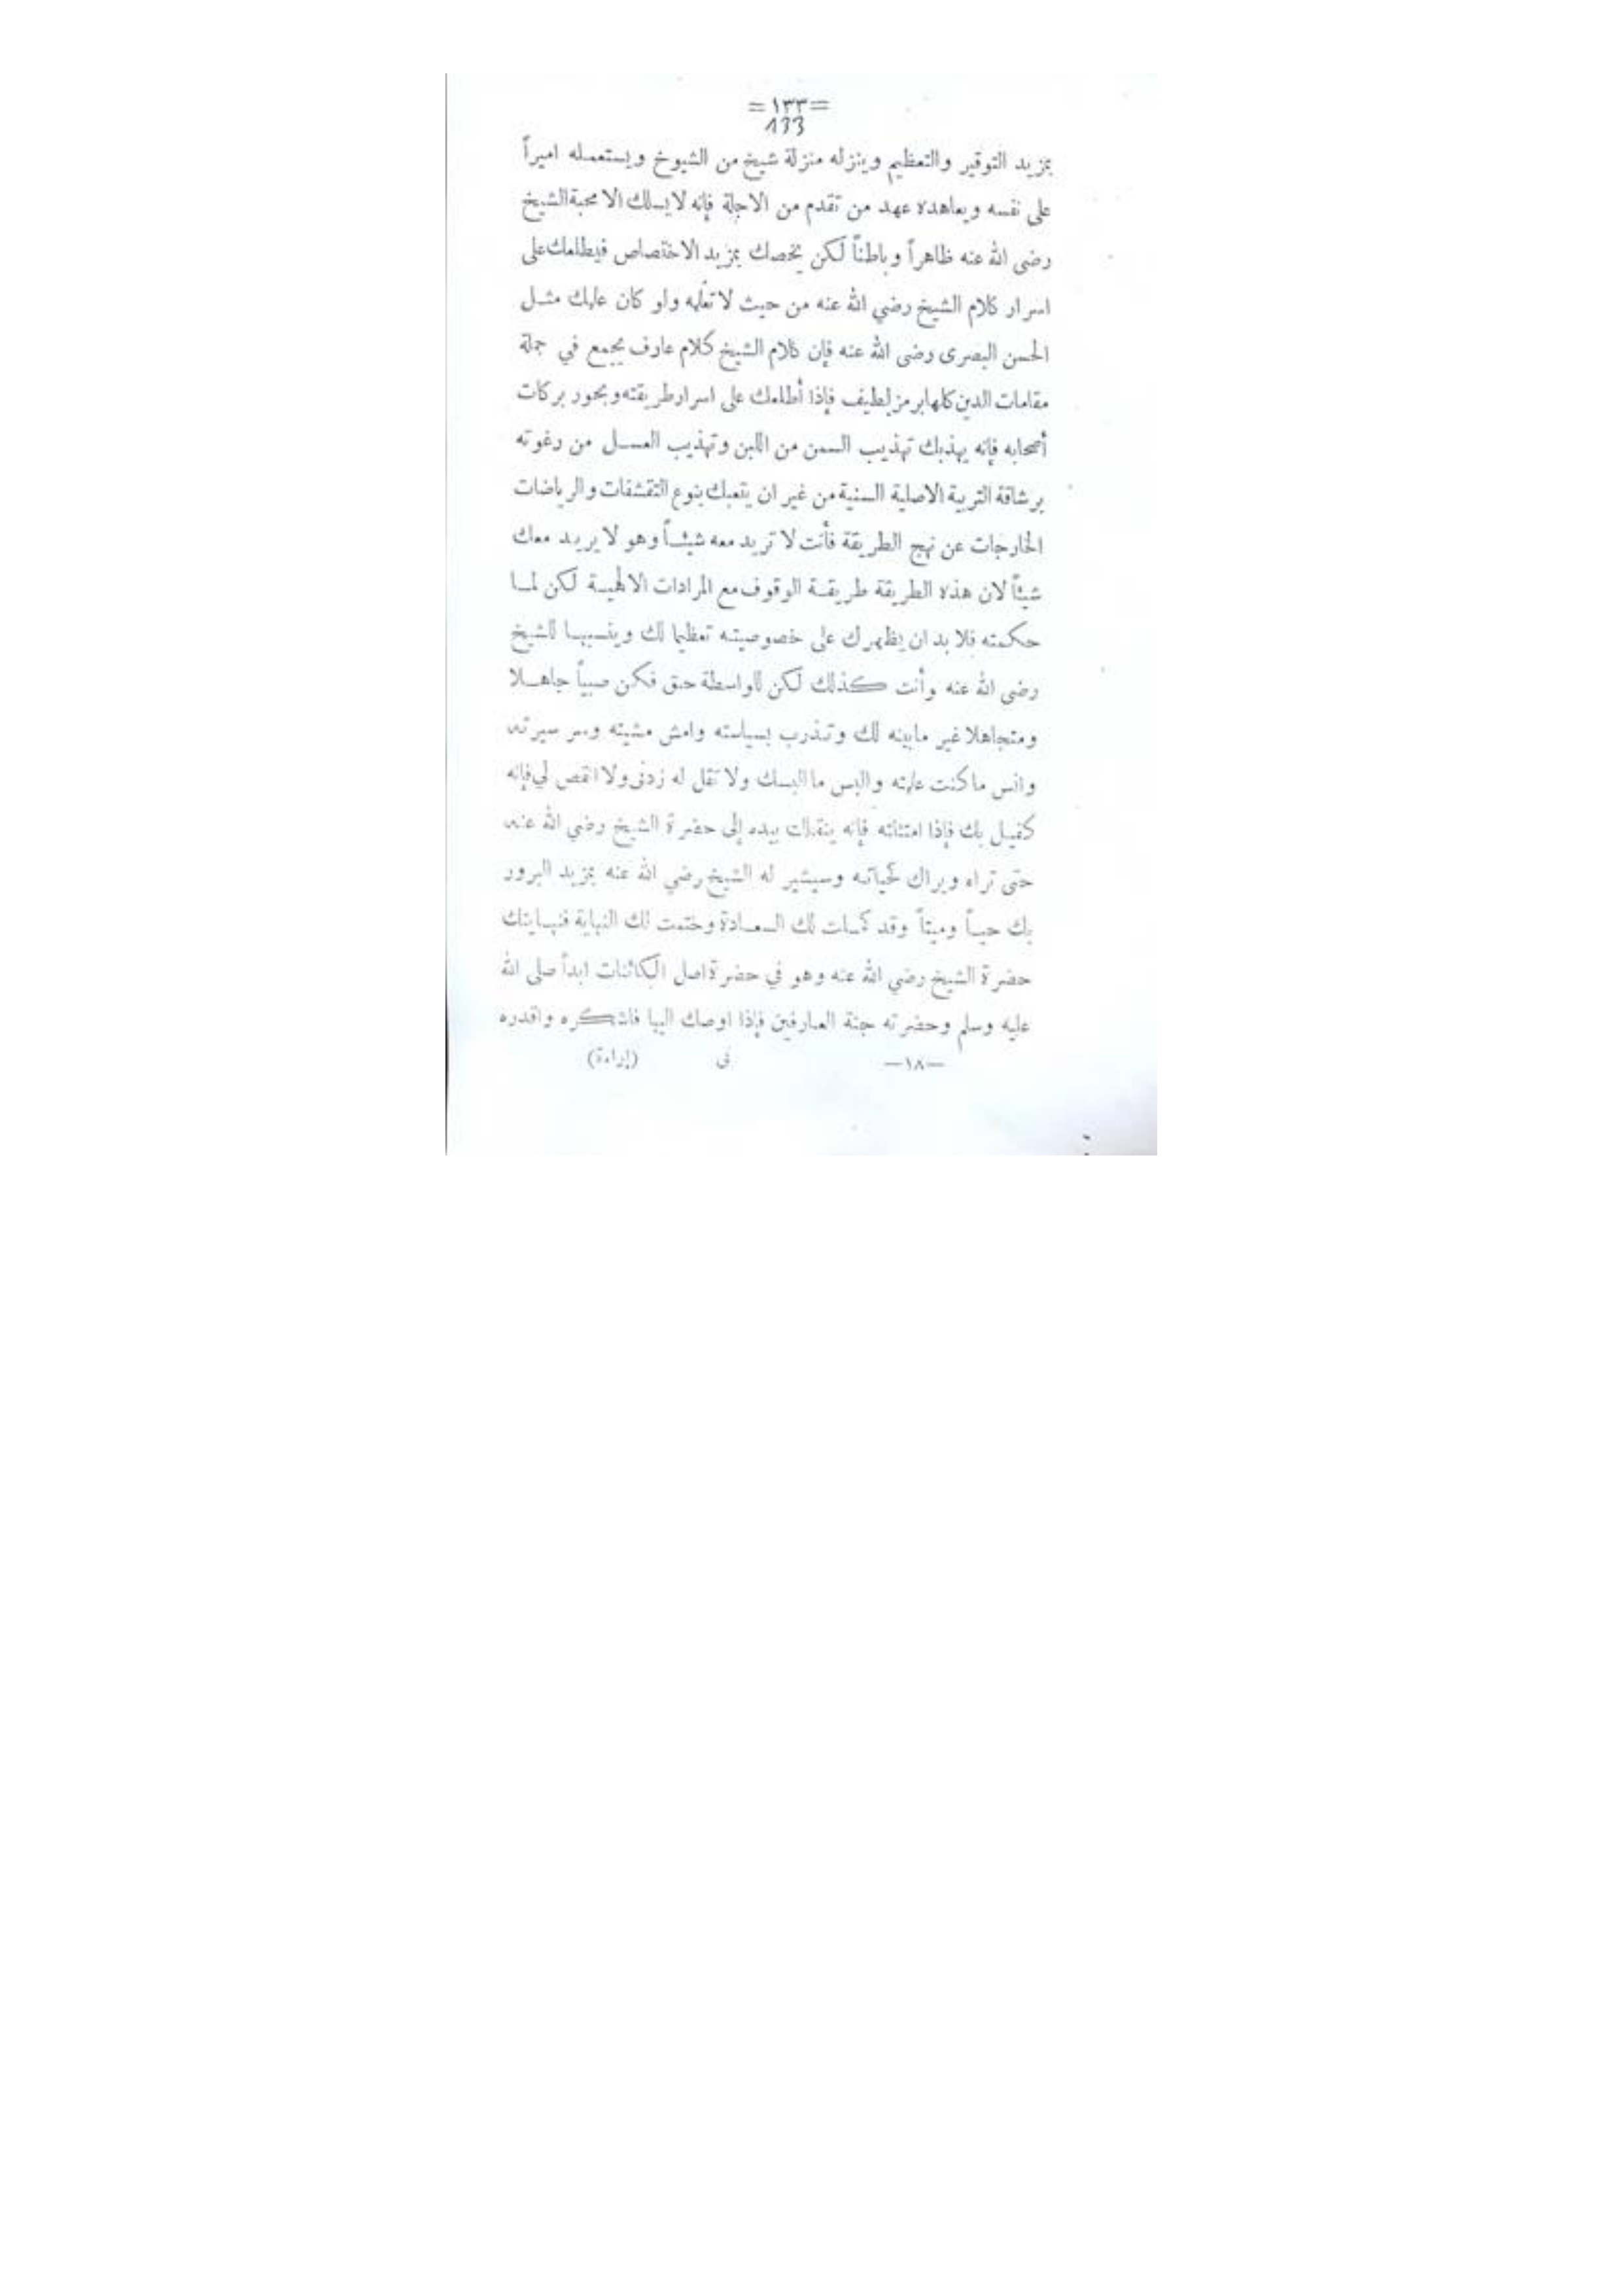 =١٣٣=
133
بمزيد التوقير والتعظيم وينزله منزلة شيخ من الشيوخ ويستعمله اميراً
على نفسه ويعاهده عهد من تقدم من الاجلة فإنه لايسلك الا محبة الشيخ
رضى الله عنه ظاهراً وباطناً لكن يخصك بمزيد الاختصاص فيطلعك على
اسرار كلام الشيخ رضي الله عنه من حيث لا تعلمه ولو كان علمك مثل
الحسن البصرى رضى الله عنه فإن كلام الشيخ كلام عارف يجمع في جملة
مقامات الدين كلها برمز لطيف فإذا أطلعك على اسرار طريقته وبحور بركات
أصحابه فإنه يهذبك تهذيب السمن من اللبن وتهذيب العسل من رغوته
برشاقة التربية الاصلية السنية من غير ان يتعبك بنوع التقشفات والرياضات
الخارجات عن نهج الطريقة فأنت لا تريد معه شيئاً وهو لا يريد معك
شيئاً لان هذه الطريقة طريقة الوقوف مع المرادات الالهية لكن لما
حكمته فلا بد ان يظهرك على خصوصيته تعظيما لك وينسبها للشيخ
رضى الله عنه وأنت كذلك لكن للواسطة حق فكن صبياً جاهلا
ومتجاهلا غير مابينه لك وتدرب بسياسته وامش مشيته وسر سيرته
وانس ماكنت علمته والبس ما البسك ولا تقل له زدنى ولا انقص لي فإنه
كفيل بك فإذا امتثلته فإنه ينقلك بيده إلى حضرة الشيخ رضي الله عنه
حتى تراه ويراك كحياته وسيشير له الشيخ رضي الله عنه بمزيد البرور
بك حياً وميتاً وقد كملت لك السعادة وختمت لك النهاية فنهايتك
حضرة الشيخ رضي الله عنه وهو في حضرة اصل الكائنات ابداً صلى الله
عليه وسلم وحضرته جنة العارفين فإذا اوصلك اليها فاشكره واقدره
—١٨— فى (إراءة)